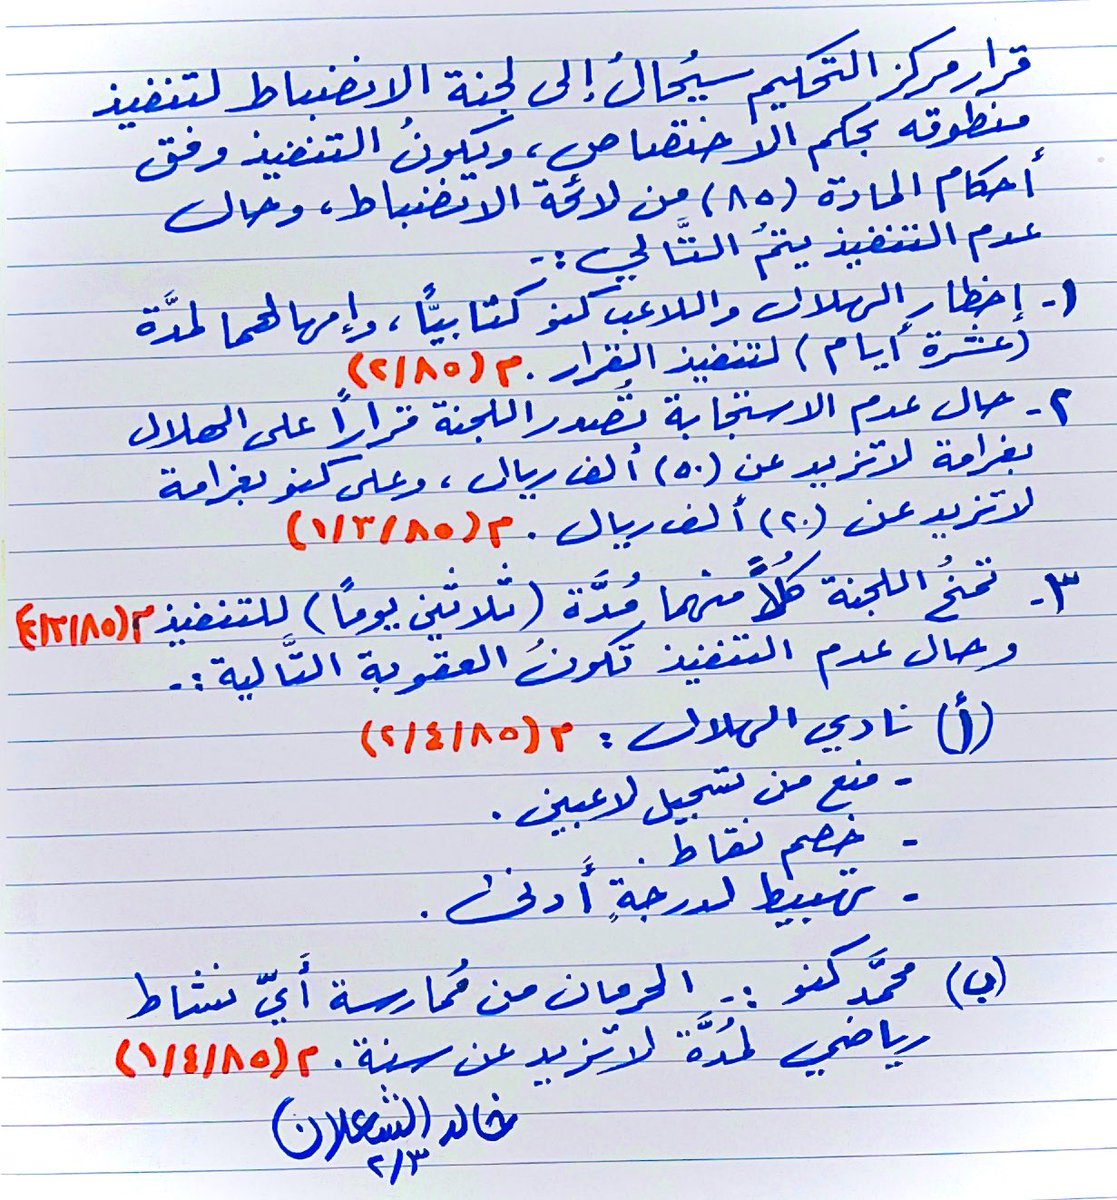 قرار مركز التحكيم سيُحالُ إلى لجنة الانضباط لتنفيذ
منطوقه بحكم الاختصاص، ويكونُ التنفيذ وفق
أحكام المادة (٨٥) من لائحة الانضباط، وحال
عدم التنفيذ يتمُّ التَّالي :-
١- إخطار الهلال واللاعب كنو كتابيًّا، وإمهالهما لمدَّة
(عشرة أيام) لتنفيذ القرار . م (٢/٨٥)
٢- حال عدم الاستجابة تُصدر اللجنة قراراً على الهلال
بغرامة لاتزيد عن (٥٠) ألف ريال، وعلى كنو بغرامة
لاتزيد عن (٢٠) ألف ريال . م (١/٣/٨٥)
٣- تمنحُ اللجنة كُلاًّ منهما مُدَّة (ثلاثين يوماً) للتنفيذ م (٤/٣/٨٥)
وحال عدم التنفيذ تكونُ العقوبة التَّالية :-
(أ) نادي الهلال : م (٢/٤/٨٥)
- منع من تسجيل لاعبين .
- خصم نقاط .
- تهبيط لدرجةٍ أدنى .
(ب) محمَّد كنو :- الحرمان من مُمارسة أَيّ نشاط
رياضي لمُدَّة لاتزيد عن سنة . م (١/٤/٨٥)
خالد الشعلان
٢/٣